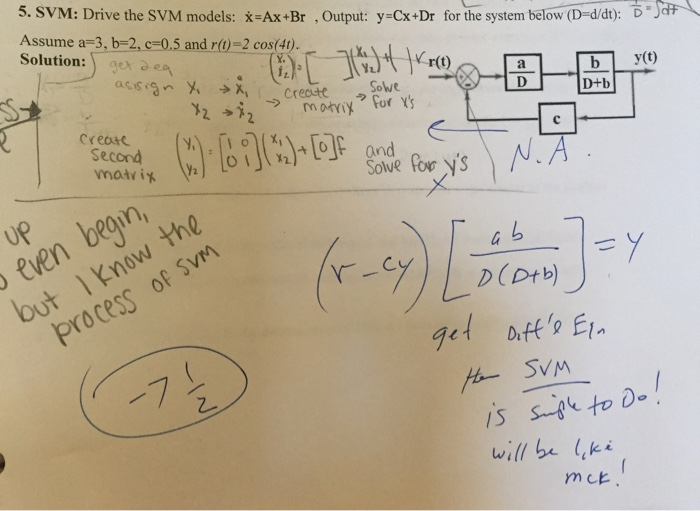 5. SVM: Drive the SVM models: ẋ=Ax+Br , Output: y=Cx+Dr for the system below (D=d/dt): 1/D = ∫dt
Assume a=3, b=2, c=0.5 and r(t)=2 cos(4t).
Solution:
get 2eq
assign x₁ → ẋ₁
x₂ → ẋ₂
→ create matrix
→ Solve for x's
r(t)
a
D
b
D+b
y(t)
c
create second matrix
(y₁ y₂) = [1 0 0 1](x₁ x₂) + [0]f
and solve for y's
N.A.
up
even begin,
but I know the
process of SVM
(r-cy) [ab / D(D+b)] = y
get Diff'l Eqn
then SVM
is simple to Do!
will be like
mck!
-7 1/2